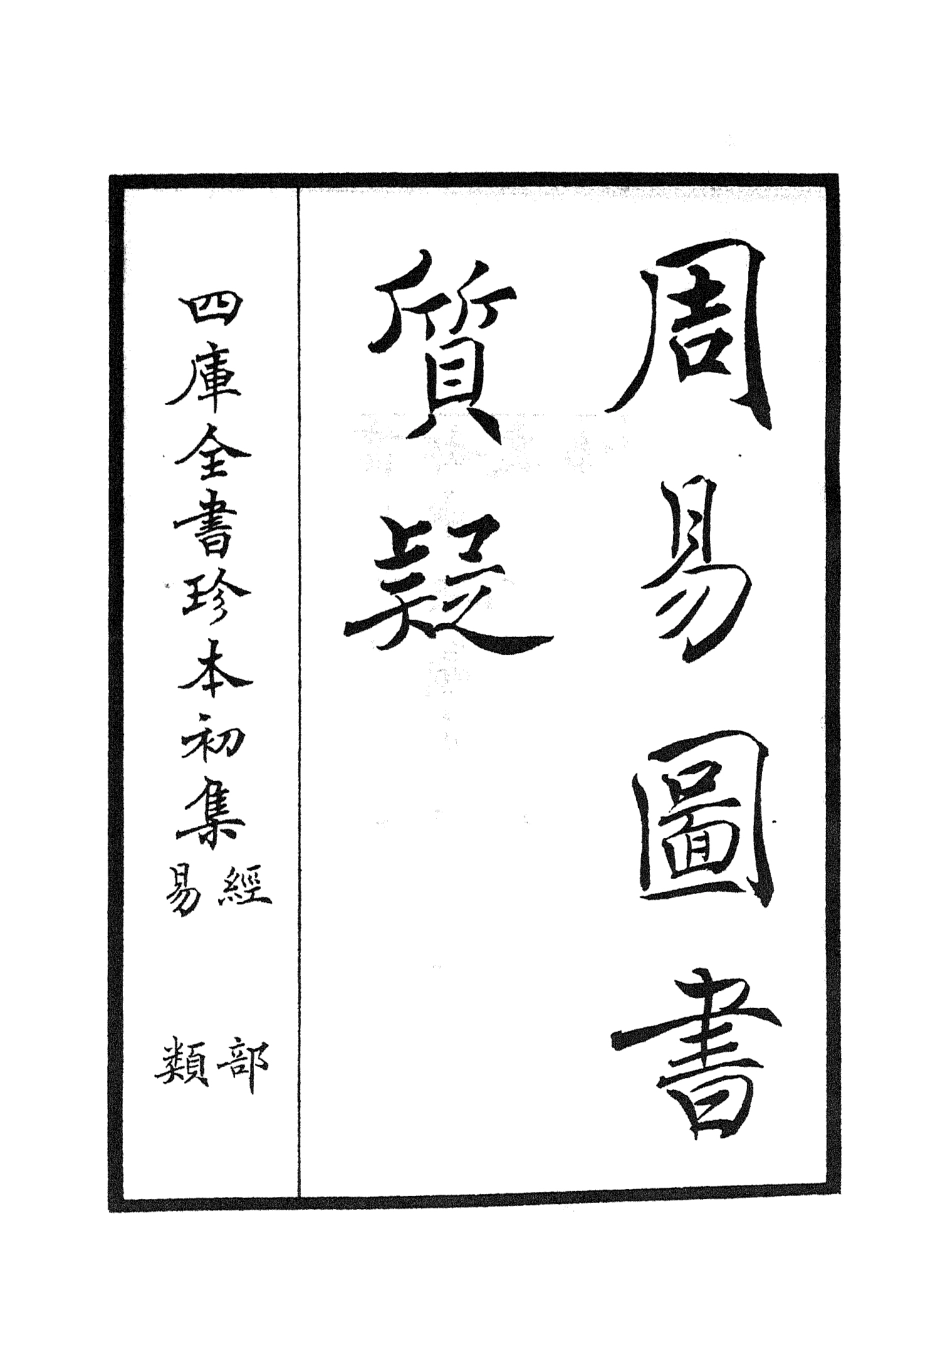 周易圖書
質疑
四庫全書珍本初集
經部
易類